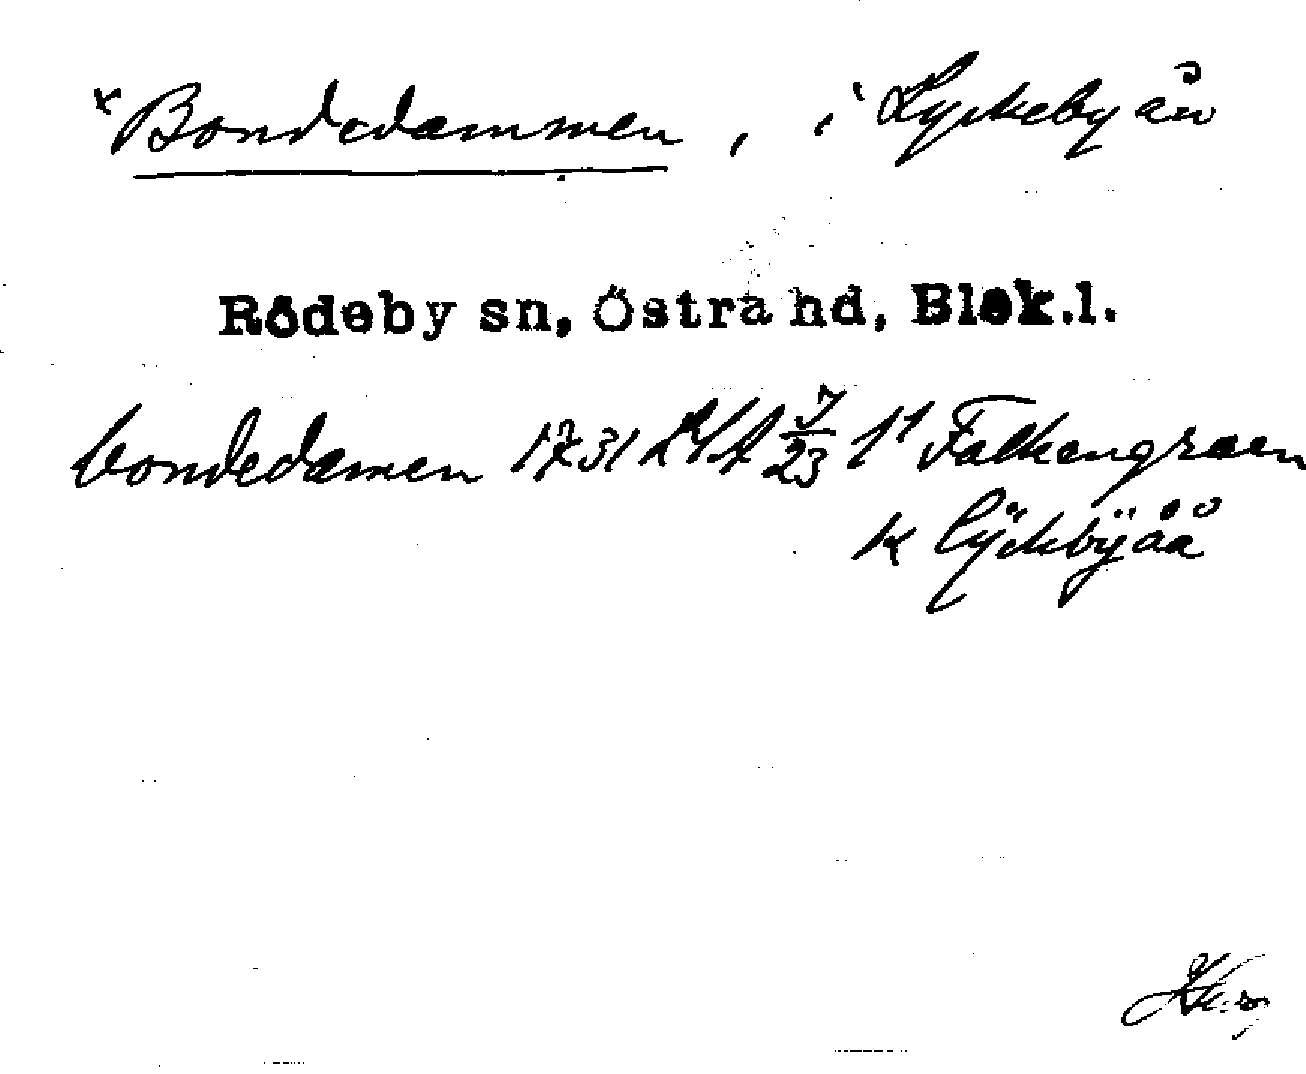 x Bondedammen, i Lyckebyån
Rödeby sn, Östra hd, Blek.l.
bondedamen 1731 LMA J/23 1:1 Falkengraen
k lÿckbÿåå